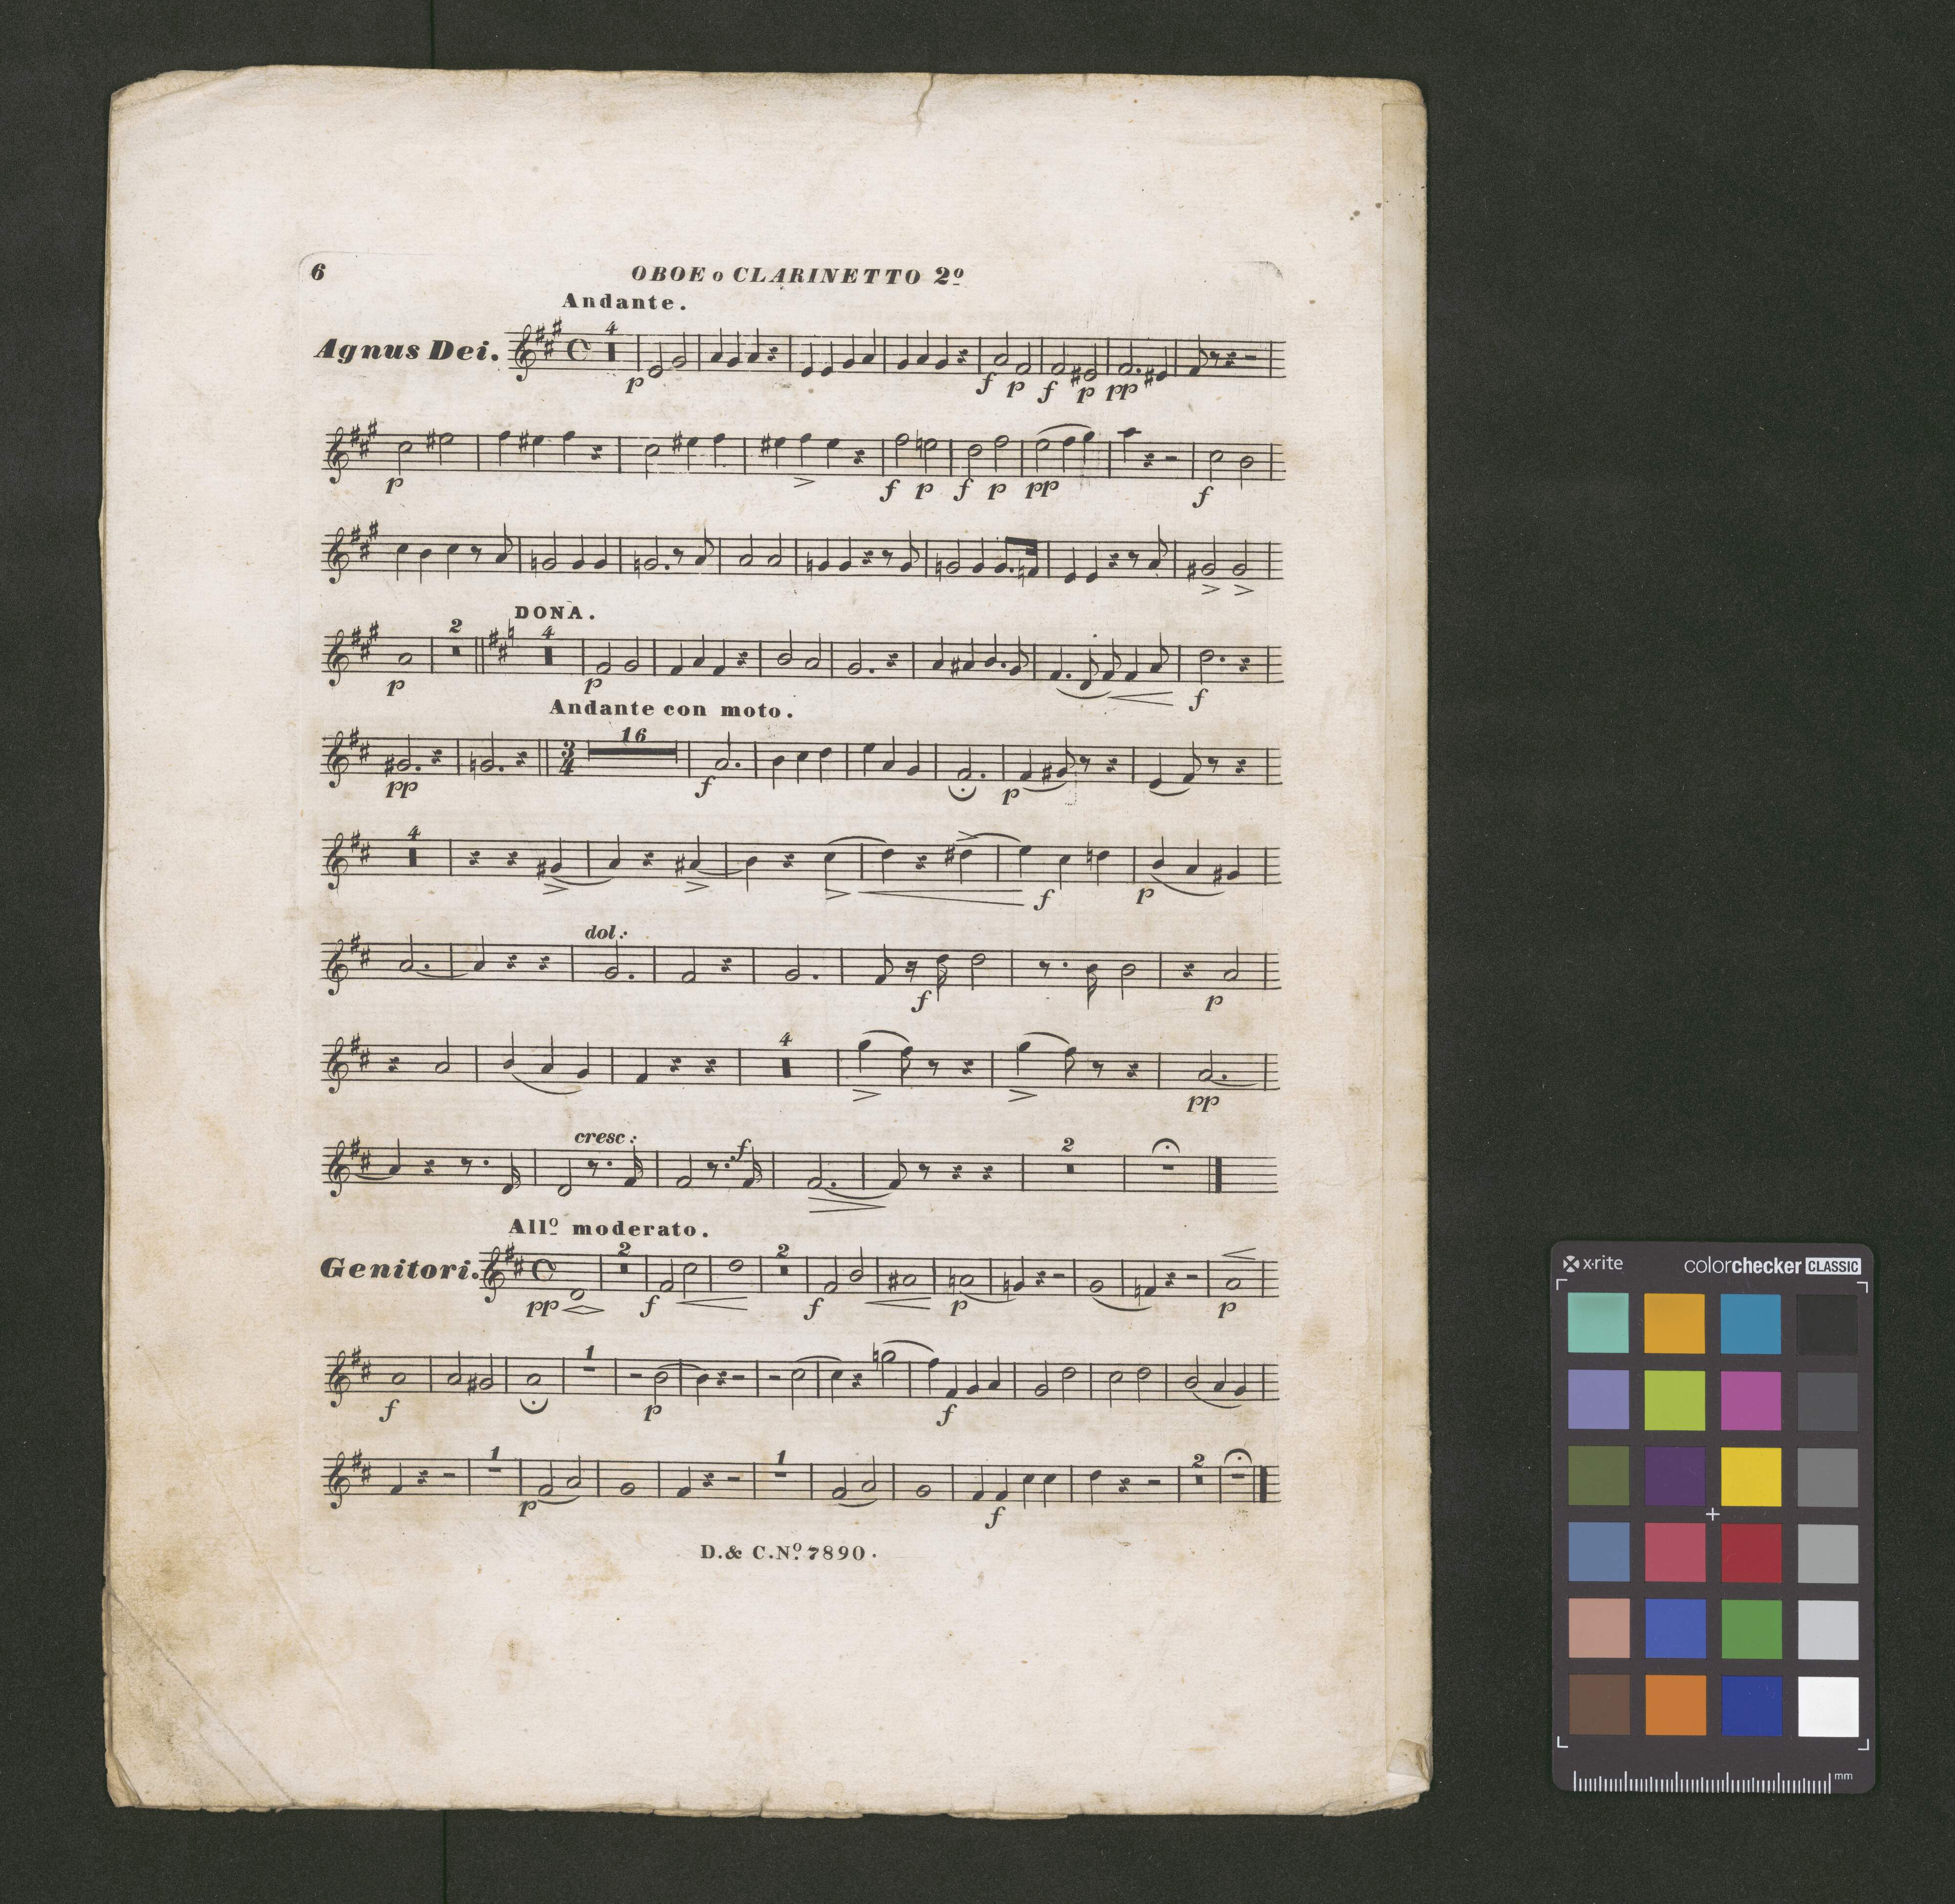 6
OBOE o CLARINETTO 2º
Andante.
Agnus Dei.
4
p f p f p pp
p > f p f p pp f
> >
DONA.
2 4
p p f
Andante con moto.
3/4 16
pp f p
4
> > > > f p
dol:
f p
4
> > pp
cresc:
f 2
Allº moderato.
Genitori.
2 2
pp f f p p
1
f p f
1 1 2
p f
D.& C.Nº 7890.
x·rite
colorchecker CLASSIC
mm